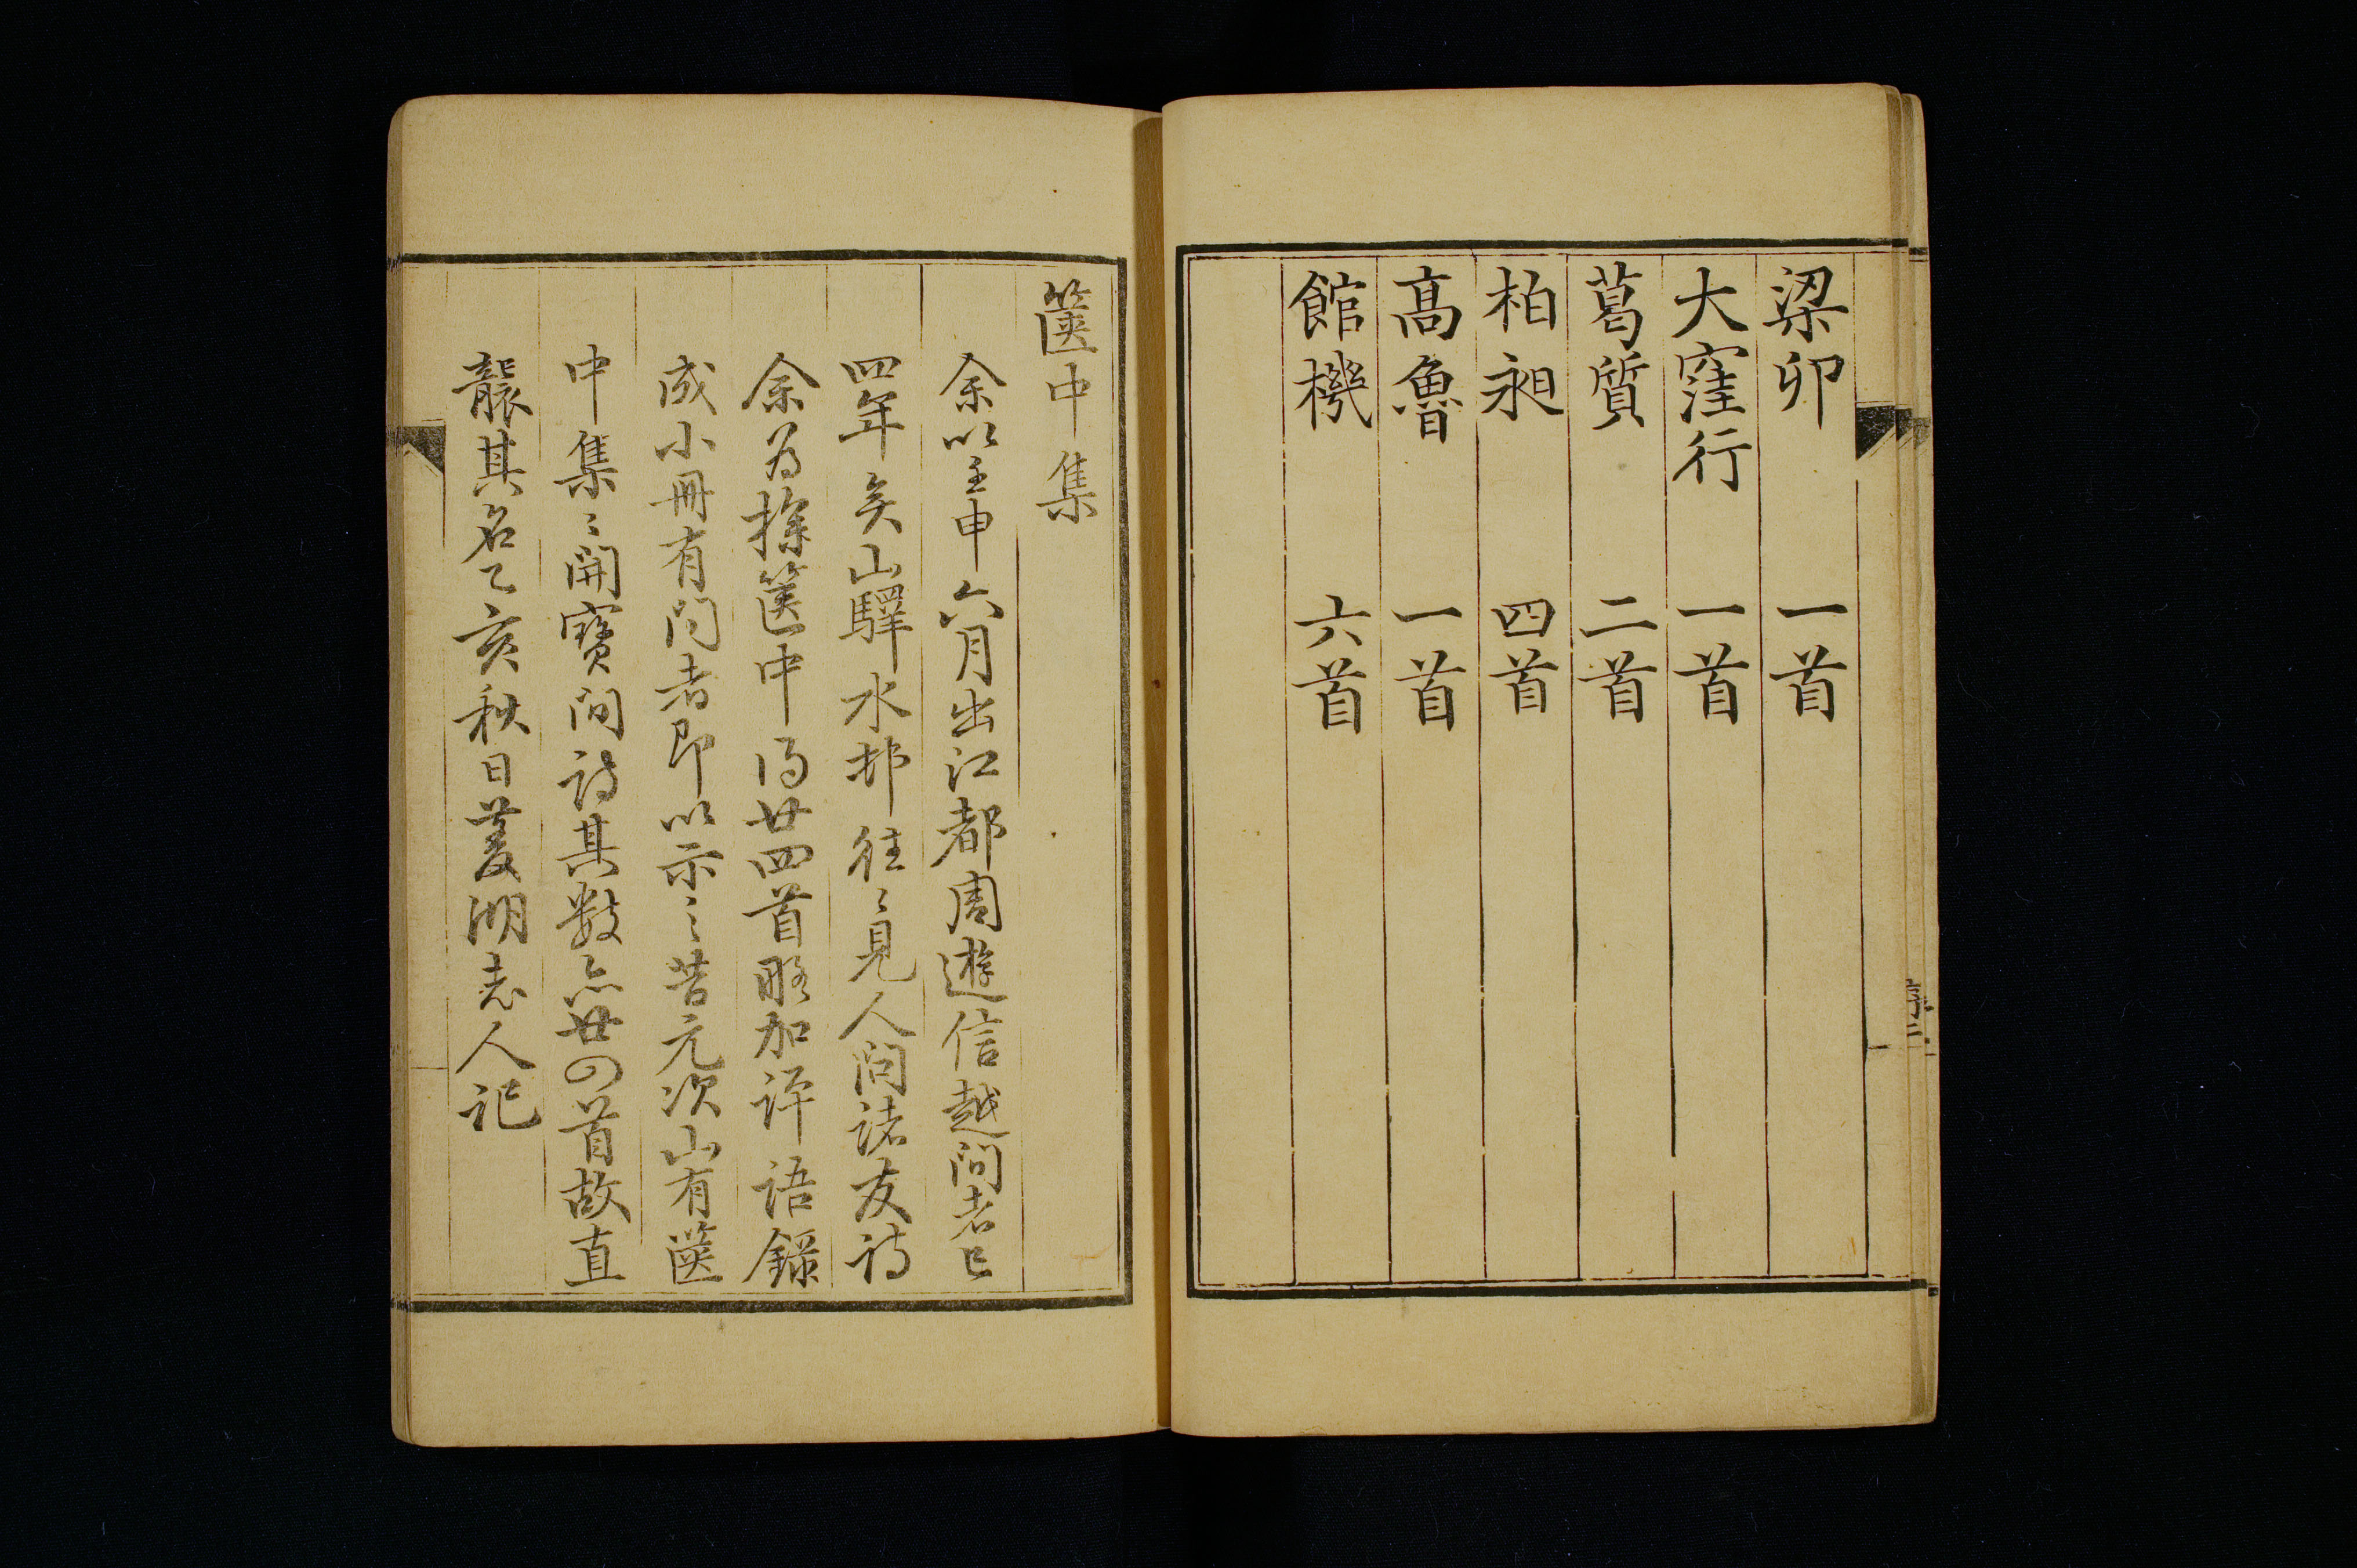 梁卯 一首
大窪行 一首
葛質 二首
柏昶 四首
髙魯 一首
館機 六首
序 二
篋中集
余以壬申六月出江都周遊信越間者已
四年矣山驛水邨往〻見人問諸友詩
余為探篋中得廿四首略加評語録
成小冊有问者即以示〻昔元次山有篋
中集〻開寶间詩其数亦廿四首故直
襲其名乙亥秋日菱湖老人記